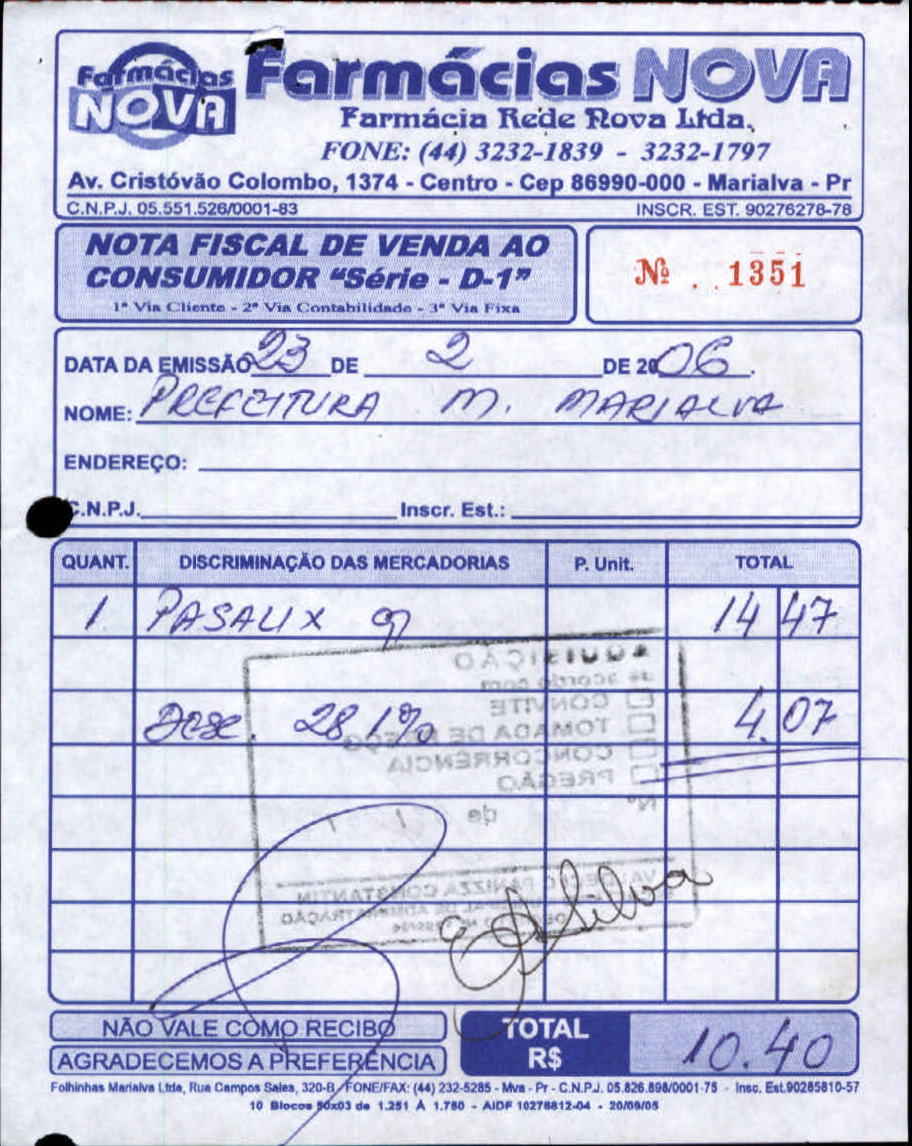 Farmácias NOVA
Farmácias NOVA
Farmácia Rede Nova Ltda.
FONE: (44) 3232-1839 - 3232-1797
Av. Cristóvão Colombo, 1374 - Centro - Cep 86990-000 - Marialva - Pr
C.N.P.J. 05.551.526/0001-83 INSCR. EST. 90276278-78
NOTA FISCAL DE VENDA AO
CONSUMIDOR "Série - D-1"
1ª Via Cliente - 2ª Via Contabilidade - 3ª Via Fixa
Nº 1351
DATA DA EMISSÃO 23 DE 2 DE 2006.
NOME: PREFEITURA M. MARIALVA
ENDEREÇO:
C.N.P.J. Inscr. Est.:
QUANT. DISCRIMINAÇÃO DAS MERCADORIAS P. Unit. TOTAL
1 PASALIX 14 47
AQUISIÇÃO
de acordo com
CONVITE
Desc. 28,1% 4.07
TOMADA DE PREÇO
CONCORRÊNCIA
PREGÃO
Nº de / /
PANIZZA CONSTANTIN
DE ADMINISTRAÇÃO
Silva
NÃO VALE COMO RECIBO
AGRADECEMOS A PREFERÊNCIA
TOTAL R$ 10.40
Folhinhas Marialva Ltda, Rua Campos Sales, 320-B FONE/FAX: (44) 232-5285 - Mva - Pr - C.N.P.J. 05.826.898/0001-75 - Insc. Est.90285810-57
10 Blocos 50x03 de 1.251 À 1.750 - AIDF 10278812-04 - 20/09/05